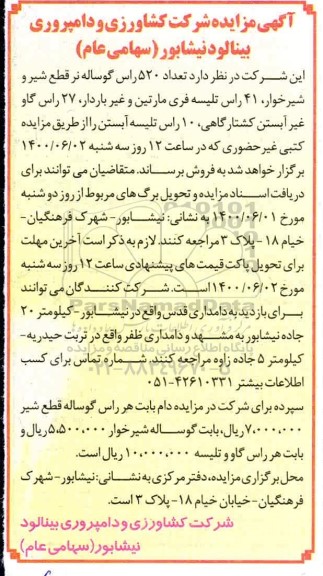 آگهی مزایده شرکت کشاورزی و دامپروری
بینالود نیشابور (سهامی عام)
این شرکت در نظر دارد تعداد ۵۲۰ راس گوساله نر قطع شیر و
شیر خوار، ۴۱ راس تلیسه فری مارتین و غیر باردار، ۲۷ راس گاو
غیر آبستن کشتارگاهی، ۱۰ راس تلیسه آبستن را از طریق مزایده
کتبی غیر حضوری که در ساعت ۱۲ روز سه شنبه ۱۴۰۰/۰۶/۰۲
برگزار خواهد شد به فروش برساند. متقاضیان می توانند برای
دریافت اسناد مزایده و تحویل برگ های مربوط از روز دو شنبه
مورخ ۱۴۰۰/۰۶/۰۱ به نشانی: نیشابور - شهرک فرهنگیان -
خیام ۱۸ - پلاک ۳ مراجعه کنند. لازم به ذکر است آخرین مهلت
برای تحویل پاکت قیمت های پیشنهادی ساعت ۱۲ روز سه شنبه
مورخ ۱۴۰۰/۰۶/۰۲ است. شرکت کنندگان می توانند
برای بازدید به دامداری قدس واقع در نیشابور - کیلومتر ۲۰
جاده نیشابور به مشهد و دامداری ظفر واقع در تربت حیدریه -
کیلومتر ۵ جاده زاوه مراجعه کنند. شماره تماس برای کسب
اطلاعات بیشتر ۴۲۶۱۰۳۳۱-۰۵۱
سپرده برای شرکت در مزایده دام بابت هر راس گوساله قطع شیر
۷،۰۰۰،۰۰۰ ریال، بابت گوساله شیر خوار ۵،۵۰۰،۰۰۰ ریال و
بابت هر راس گاو و تلیسه ۱۰،۰۰۰،۰۰۰ ریال است.
محل برگزاری مزایده، دفتر مرکزی به نشانی: نیشابور - شهرک
فرهنگیان - خیابان خیام ۱۸ - پلاک ۳ است.
شرکت کشاورزی و دامپروری بینالود
نیشابور (سهامی عام)